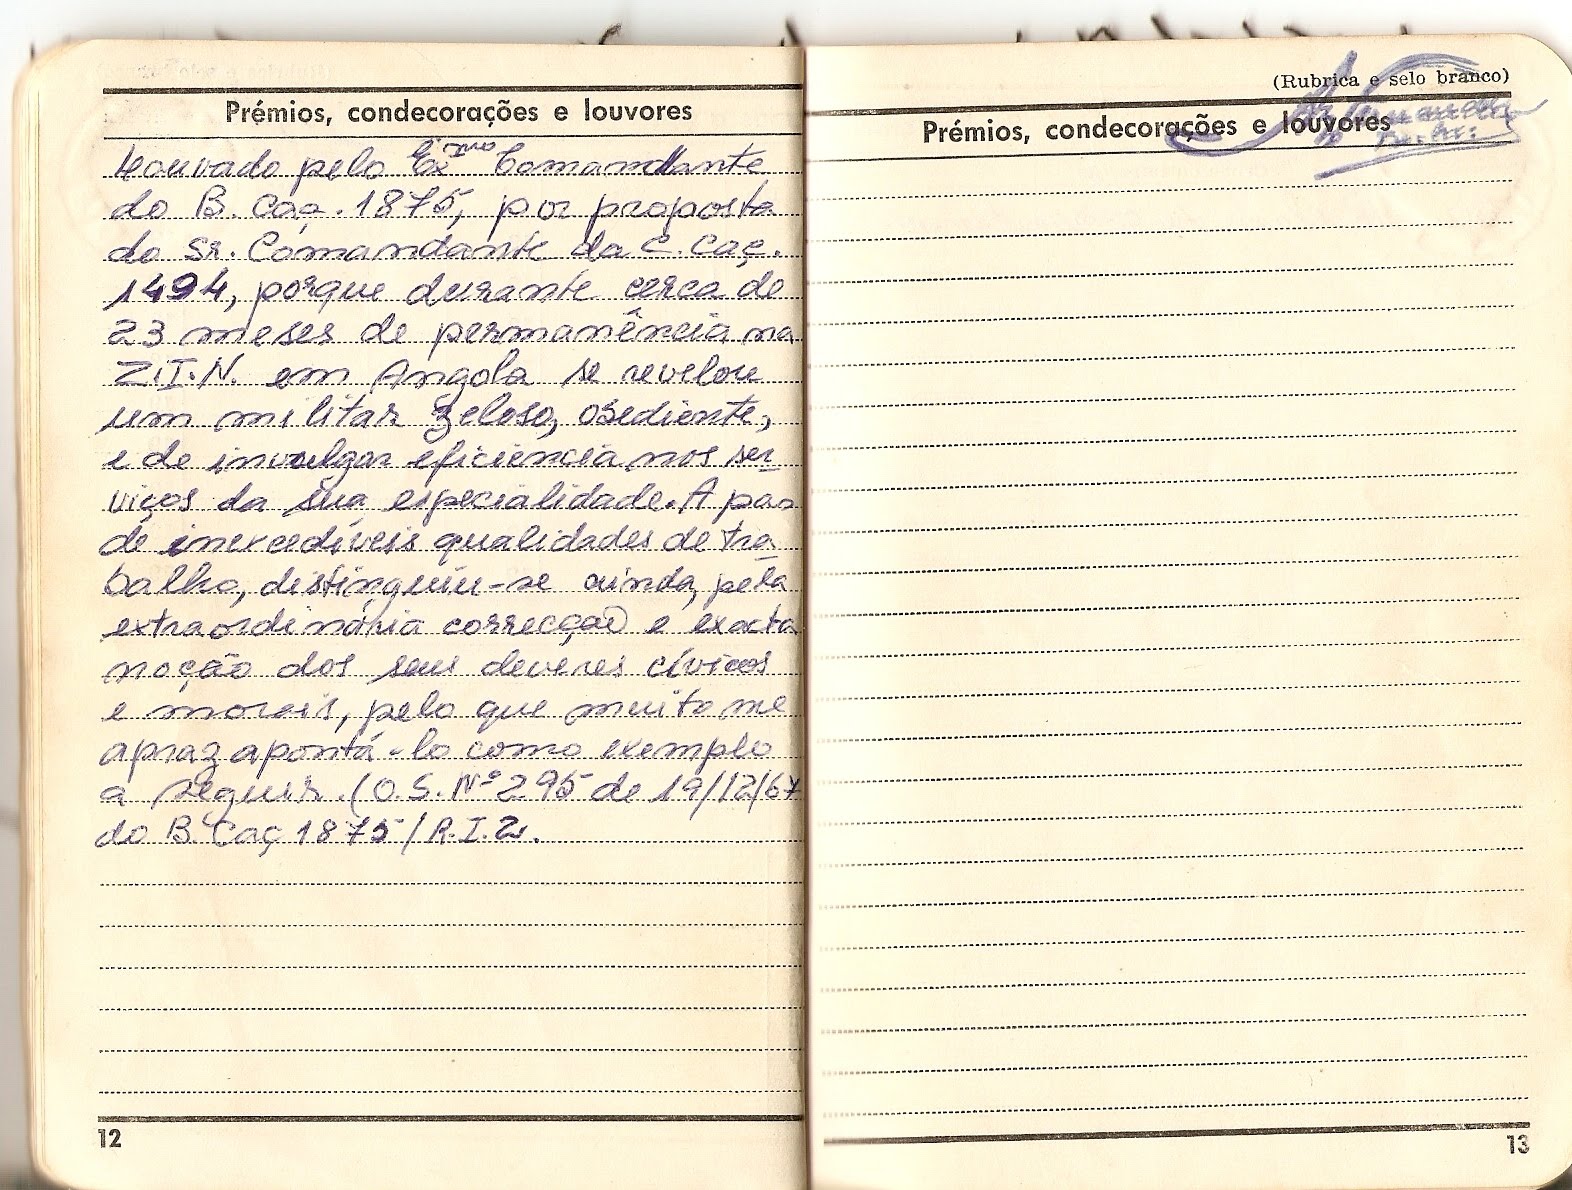 Prémios, condecorações e louvores
Louvado pelo Exmo Comandante
do B. Caç. 1875, por proposta
do Sr. Comandante da C. Caç.
1494, porque durante cerca de
23 meses de permanência na
Z.I.N. em Angola se revelou
um militar zeloso, obediente,
e de invulgar eficiência nos ser-
viços da sua especialidade. A par
de inexcedíveis qualidades de tra-
balho, distinguiu-se ainda, pela
extraordinária correcção e exacta
noção dos seus deveres cívicos
e morais, pelo que muito me
apraz apontá-lo como exemplo
a seguir. (O.S. Nº 295 de 19/12/67
do B. Caç 1875/R.I.2.
12
(Rubrica e selo branco)
Prémios, condecorações e louvores
13